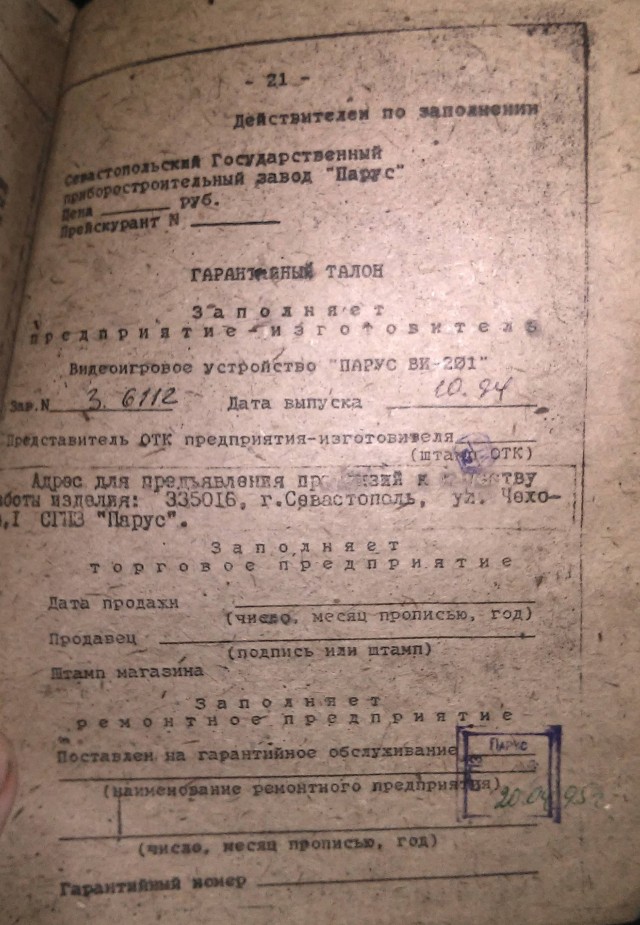 - 21 -
Действителен по заполнении
Севастопольский Государственный
приборостроительный завод "Парус"
Цена ______ руб.
Прейскурант N ________
ГАРАНТИЙНЫЙ ТАЛОН
Заполняет
предприятие-изготовитель
Видеоигровое устройство "ПАРУС ВИ-201"
Зав.N 3. 6112 Дата выпуска 10.94
Представитель ОТК предприятия-изготовителя
(штамп ОТК)
Адрес для предъявления претензий к качеству
работы изделия: 335016, г.Севастополь, ул. Чехо-
ва,1 СГПЗ "Парус".
Заполняет
торговое предприятие
Дата продажи
(число, месяц прописью, год)
Продавец
(подпись или штамп)
Штамп магазина
Заполняет
ремонтное предприятие
Поставлен на гарантийное обслуживание
ПАРУС
(наименование ремонтного предприятия)
20.04.95г.
(число, месяц прописью, год)
Гарантийный номер